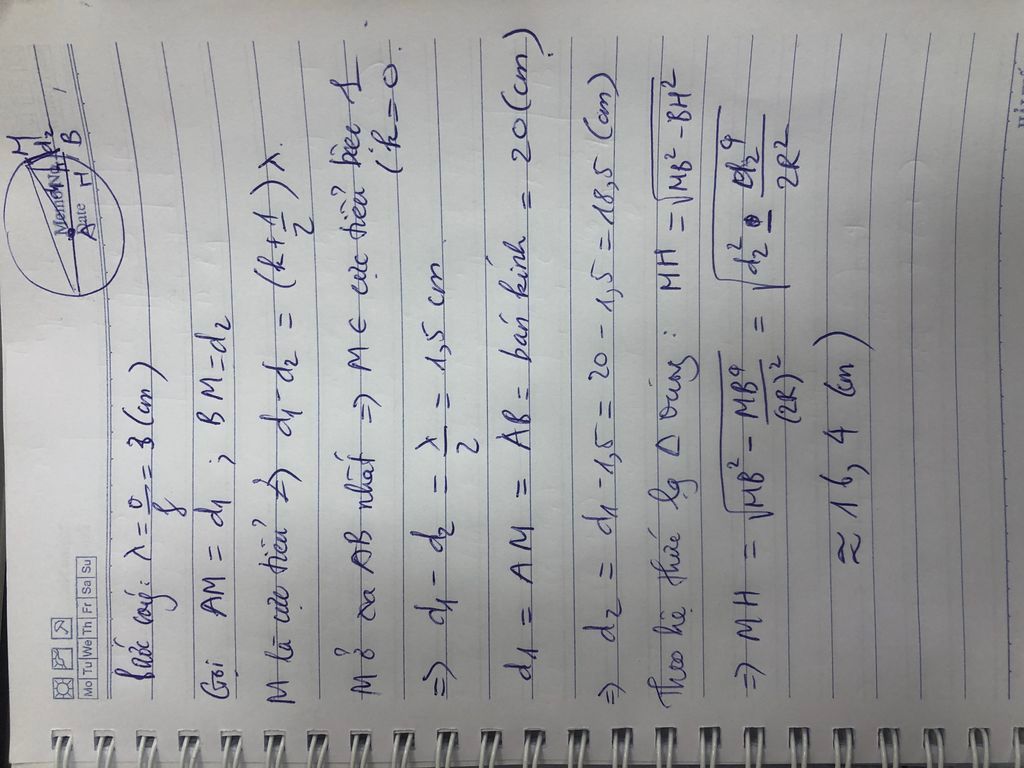 Mo Tu We Th Fr Sa Su
Memo No.
Date
M
d2
A H B
bước sóng: λ = v/f = 3 (cm)
Gọi AM = d1 ; BM = d2
M là cực tiểu => d1 - d2 = (k + 1/2) λ
M ở xa AB nhất => M ∈ cực tiểu bậc 1
(k = 0
=> d1 - d2 = λ/2 = 1,5 cm
d1 = AM = AB = bán kính = 20 (cm)
=> d2 = d1 - 1,5 = 20 - 1,5 = 18,5 (cm)
Theo hệ thức lg Δ vuông: MH = √(MB² - BH²)
=> MH = √(MB² - MB⁴/(2R)²) = √(d2² - d2⁴/2R²)
≈ 16,4 cm)